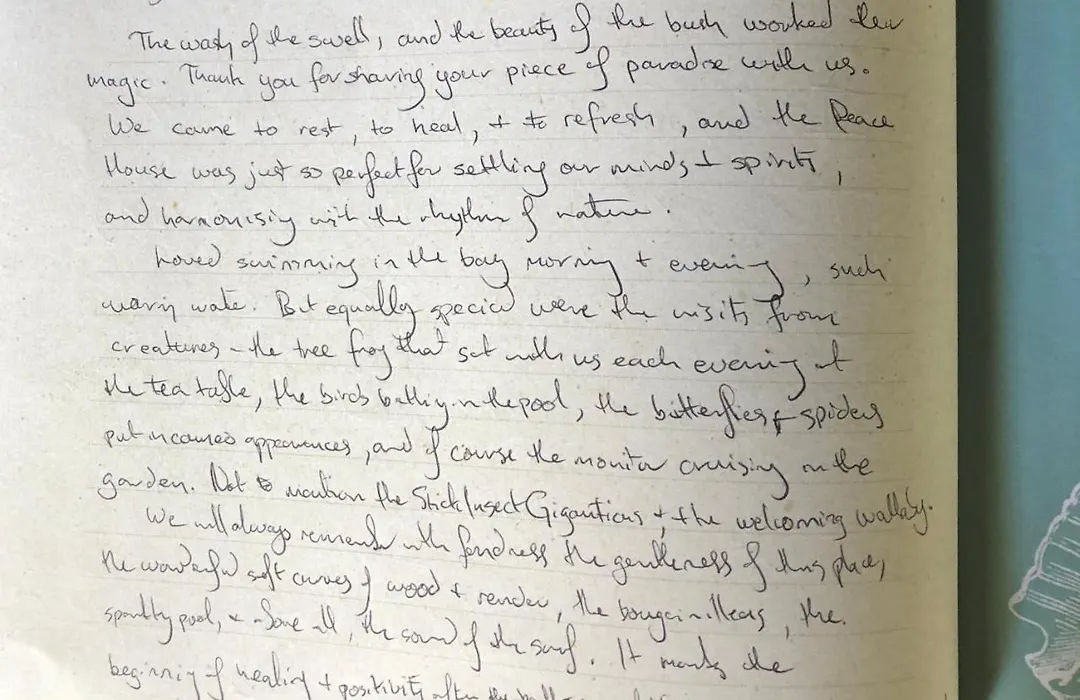 The wash of the swell, and the beauty of the bush worked their
magic. Thank you for sharing your piece of paradise with us.
We came to rest, to heal, + to refresh, and the Peace
House was just so perfect for settling our minds + spirits,
and harmonising with the rhythm of nature.
Loved swimming in the bay morning + evening, such
warm water. But equally special were the visits from
creatures - the tree frog that sat with us each evening at
the tea table, the birds bathing in the pool, the butterflies + spiders
put in cameo appearances, and of course the monitor cruising in the
garden. Not to mention the Stick Insect Giganticus + the welcoming wallaby.
We will always remember with fondness the gentleness of this place,
the wonderful soft curves of wood + render, the bougainvilleas, the
sparkly pool, + above all, the sound of the surf. It marks the
beginning of healing + positivity after the